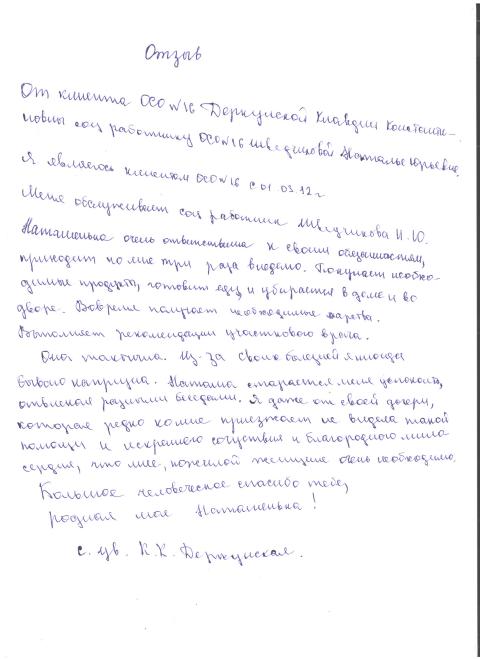 Отзыв
От клиента ОСО №16 Деркунской Клавдии Константи-
новны соц работнику ОСО №16 Шведчиковой Наталье Юрьевне.
Я являюсь клиентом ОСО №16 с 01.03.12 г.
Меня обслуживает соц работник Шведчикова Н.Ю.
Наташенька очень ответственна к своим обязанностям,
приходит ко мне три раза в неделю. Покупает необхо-
димые продукты, готовит еду и убирается в доме и во
дворе. Вовремя получает необходимые лекарства.
Выполняет рекомендации участкового врача.
Она тактична. Из-за своих болезней я иногда
бываю капризна. Наташа старается меня успокоить,
отвлекая разными беседами. Я даже от своей дочери,
которая редко ко мне приезжает не видела такой
помощи и искреннего сочуствия и благородного мило
сердия, что мне, пожилой женщине очень необходимо.
Большое человеческое спасибо тебе,
родная моя Наташенька!
с. ув. К.К. Деркунская.